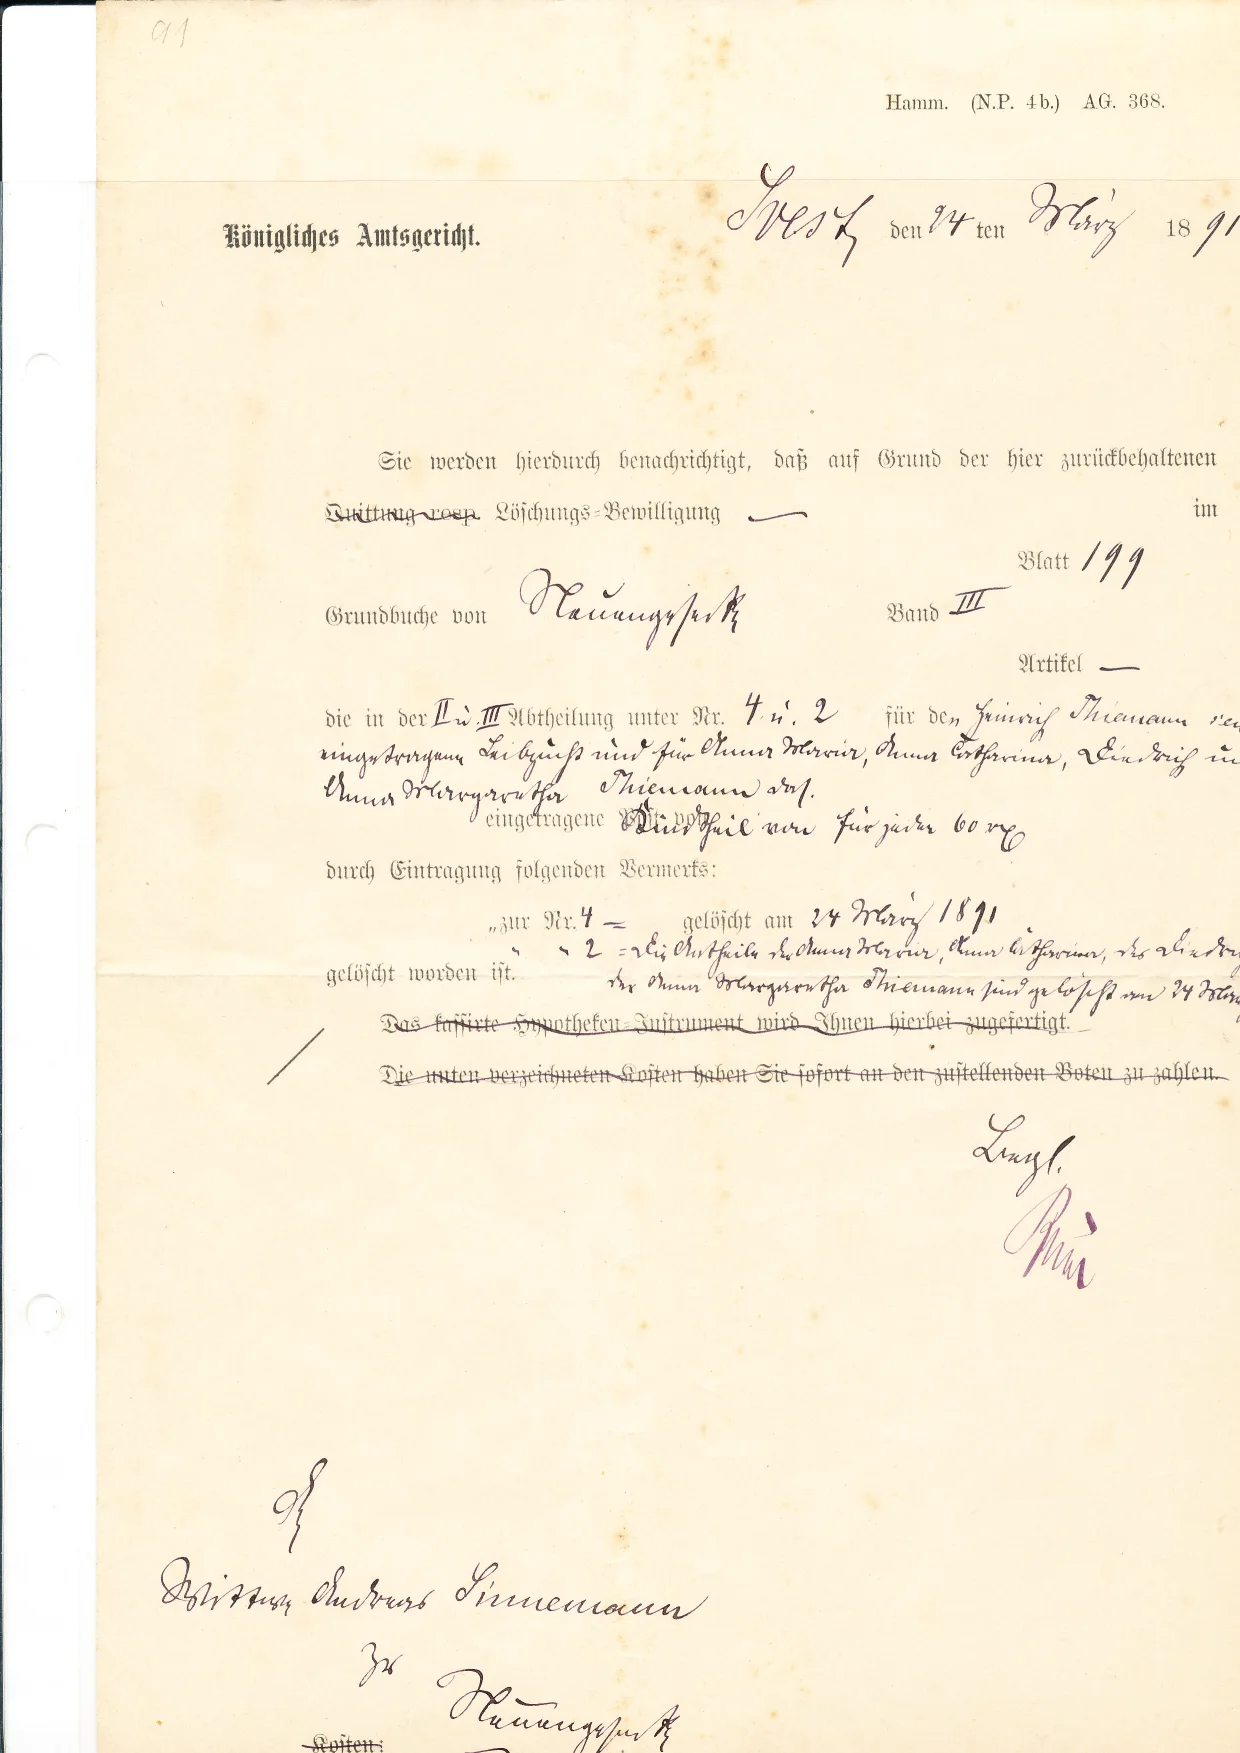 91
Hamm. (N.P. 4b.) AG. 368.
Königliches Amtsgericht. Soest, den 24 ten März 1891
Sie werden hierdurch benachrichtigt, daß auf Grund der hier zurückbehaltenen
Quittung resp. Löschungs-Bewilligung — im
Blatt 199
Grundbuche von Neuengeseke Band III
Artikel —
die in der II u. III Abtheilung unter Nr. 4 u. 2 für den Heinrich Thiemann
eingetragene Leibzucht und für Anna Maria, Anna Catharina, Diedrich u
Anna Margaretha Thiemann das.
eingetragene Post von Kindtheil von für jeden 60
durch Eintragung folgenden Vermerks:
„zur Nr. 4 = gelöscht am 24 März 1891
" " 2 = Die Antheile der Anna Maria, Anna Catharina, des Diedr
gelöscht worden ist. der Anna Margaretha Thiemann sind gelöscht am 24 Mär
Das kassirte Hypotheken-Instrument wird Ihnen hierbei zugefertigt.
Die unten verzeichneten Kosten haben Sie sofort an den zustellenden Boten zu zahlen.
Begl.
An
Wittwe Andreas Linnemann
zu
Neuengeseke
Kosten: